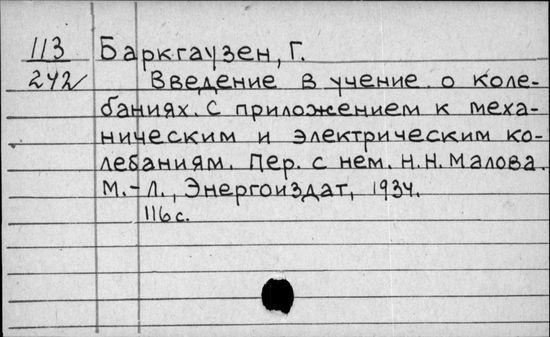 113 Баркгаузен, Г.
242 Введение в учение о коле-
баниях. С приложением к меха-
ническим и электрическим ко-
лебаниям. Пер. с нем. Н.Н. Малова.
М.-Л., Энергоиздат, 1934.
116 с.